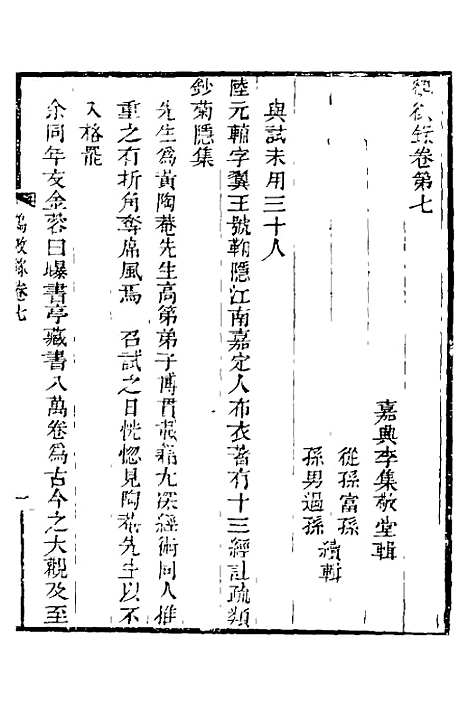 鶴徵錄卷第七
嘉興李集敬堂輯
從孫富孫
孫男遇孫
續輯
與試未用三十人
陸元輔字翼王號菊隱江南嘉定人布衣著有十三經註疏類
鈔菊隱集
先生爲黃陶菴先生高第弟子博貫載籍尤深經術同人推
重之有折角奪席風焉 召試之日恍惚見陶菴先生以不
入格罷
余同年友金蓉曰曝書亭藏書八萬卷爲古今之大觀及至
鶴徵錄卷七
一